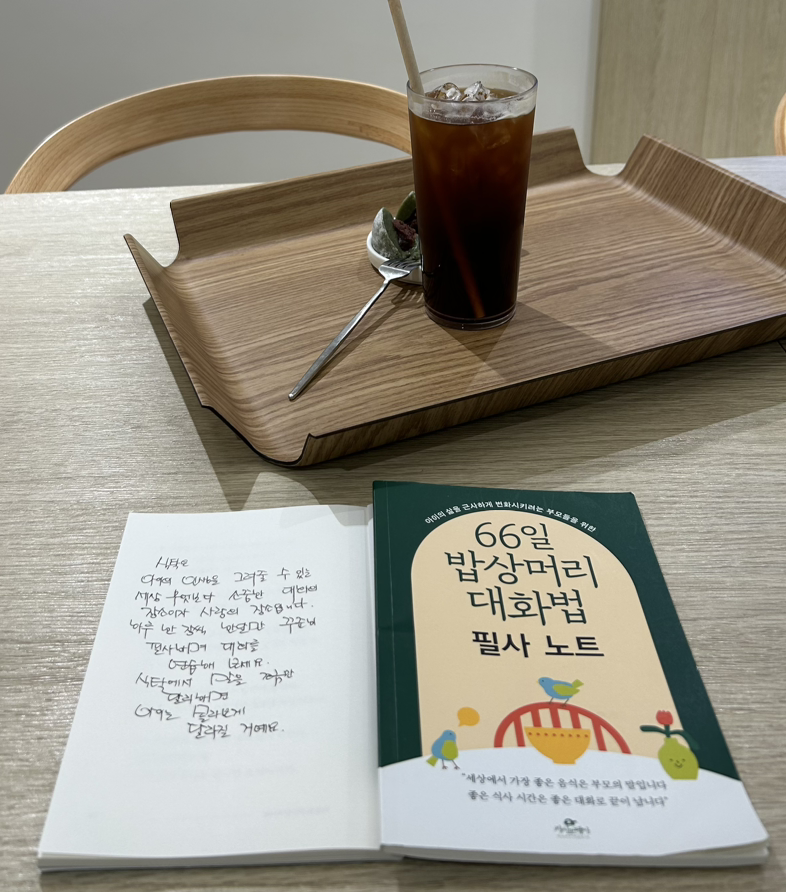 식탁은
아이의 인생을 그려줄 수 있는
세상 무엇보다 소중한 대화의
장소이자 사랑의 장소입니다.
하루 한 장씩, 한 달간 꾸준히
필사하며 대화를
연습해 보세요.
식탁에서 말을 조금만
달리하면
아이는 몰라보게
달라질 거예요.
아이의 삶을 근사하게 변화시키려는 부모들을 위한
66일
밥상머리
대화법
필사 노트
"세상에서 가장 좋은 음식은 부모의 말입니다
좋은 식사 시간은 좋은 대화로 끝이 납니다"